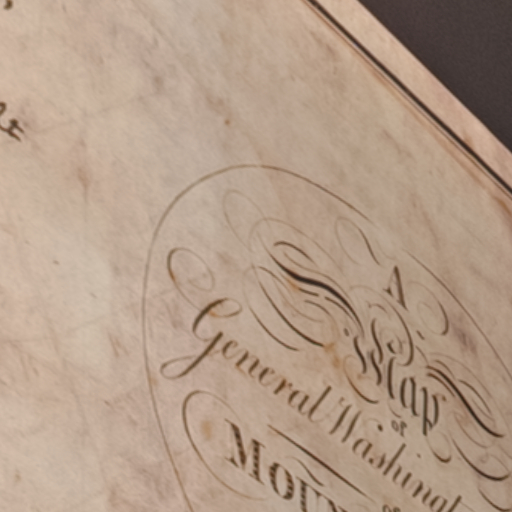 A
Map
of
General Washingt
Moun